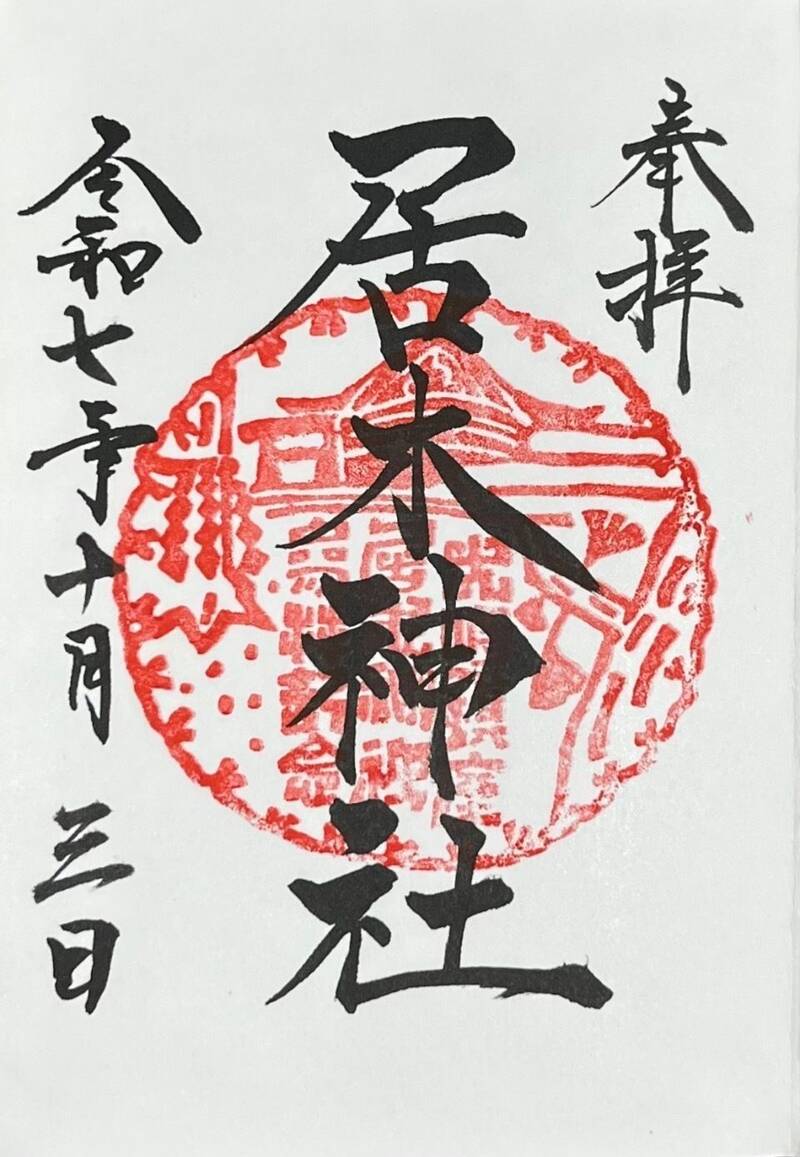 奉拝
居木神社
令和七年十月三日